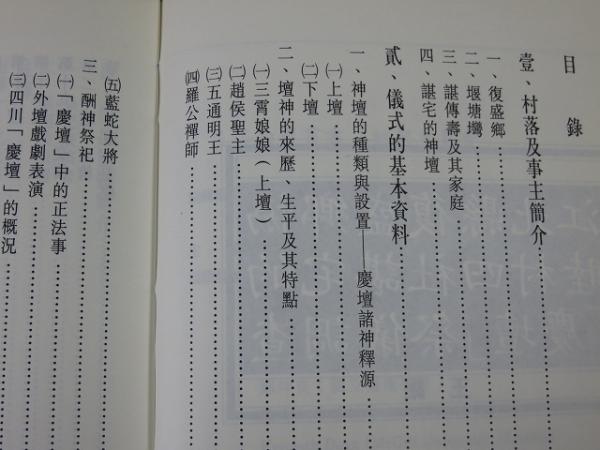 目錄
壹、村落及事主簡介
一、復盛鄉
二、堰塘灣
三、諶傳壽及其家庭
四、諶宅的神壇
貳、儀式的基本資料
一、神壇的種類與設置——慶壇諸神釋源
㈠上壇
㈡下壇
二、壇神的來歷、生平及其特點
㈠三霄娘娘（上壇）
㈡趙侯聖主
㈢五通明王
㈣羅公禪師
㈤藍蛇大將
三、酬神祭祀
㈠「慶壇」中的正法事
㈡外壇戲劇表演
㈢四川「慶壇」的概況